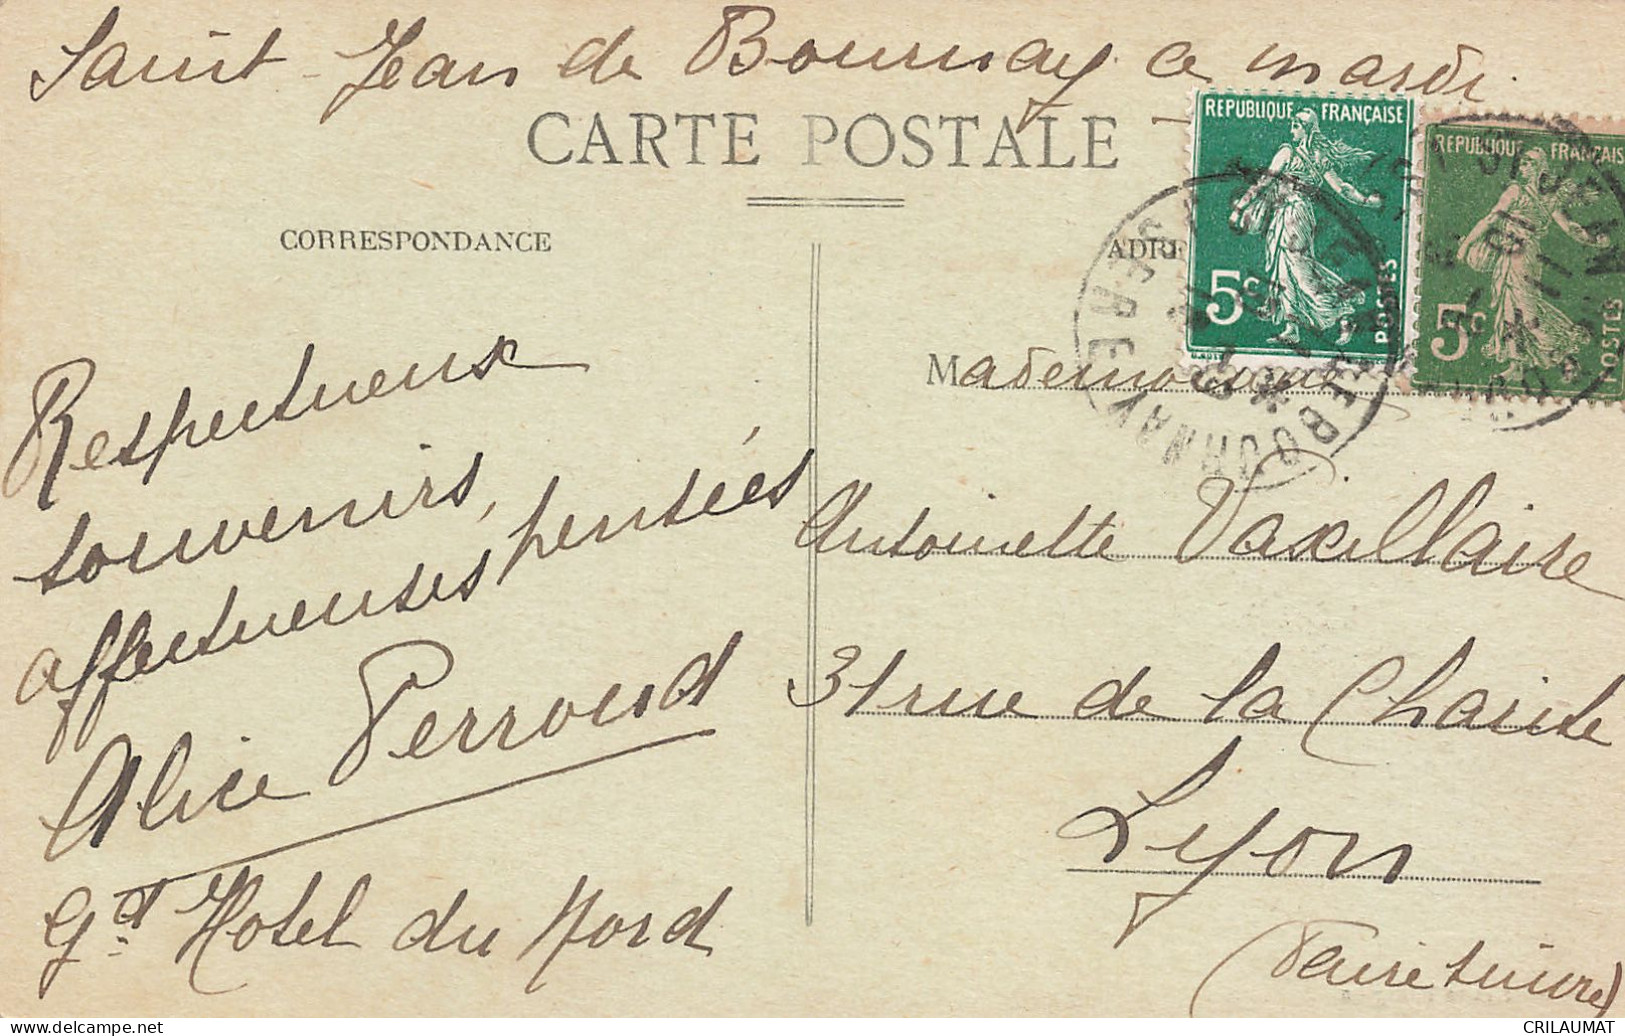 Saint Jean de Bournay ce mardi.
CARTE POSTALE
CORRESPONDANCE
ADRE
REPUBLIQUE FRANÇAISE
5c
POSTES
REPUBLIQUE FRANÇAIS
5c
POSTES
ISERE
BOURNAY
Respectueux
souvenirs,
affectueuses pensées
Alice Perroud
Gd. Hotel du Nord
Mademoiselle
Antoinette Vaxillaire
31 rue de la Charité
Lyon
(Faire suivre)
CRILAUMAT